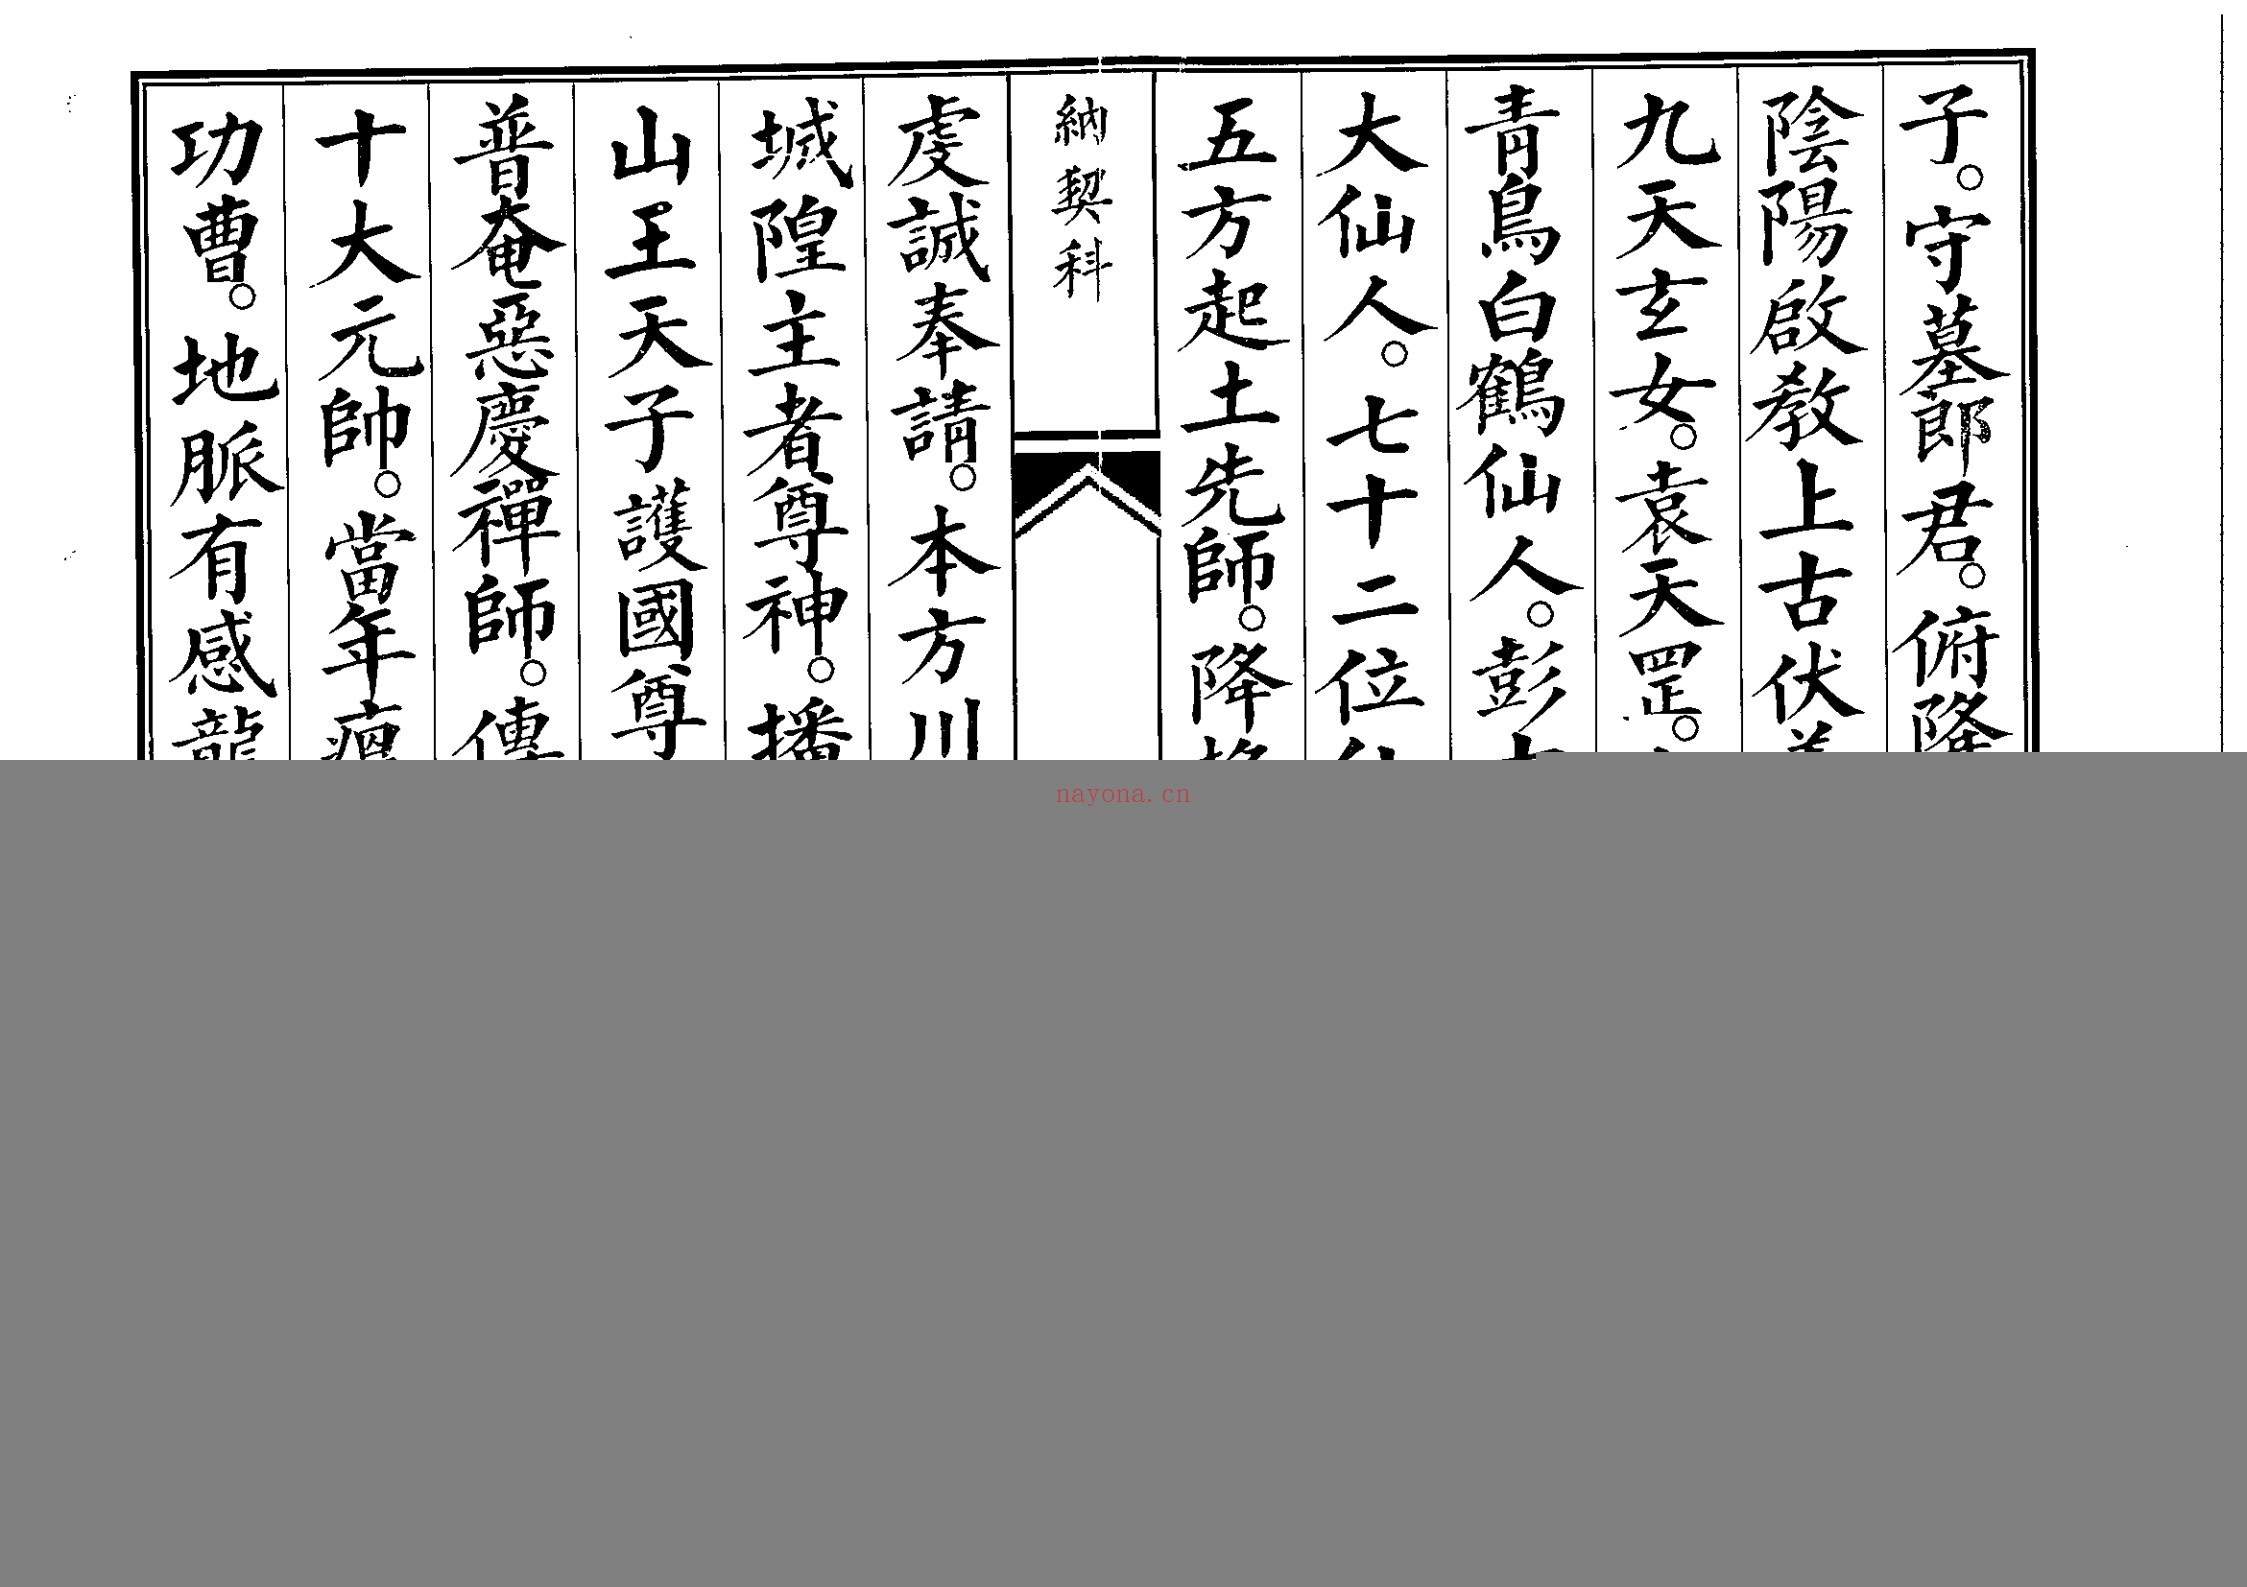 子。守墓郎君。俯降
陰陽啟教上古伏羲
九天玄女。袁天罡。
青鳥白鶴仙人。彭
大仙人。七十二位仙
五方起土先師。降
納契科
虔誠奉請。本方川
城隍主者尊神。播
山王天子護國尊
普奄惡慶禪師。傳
十大元帥。當年瘟
功曹。地脈有感龍
nayona.cn